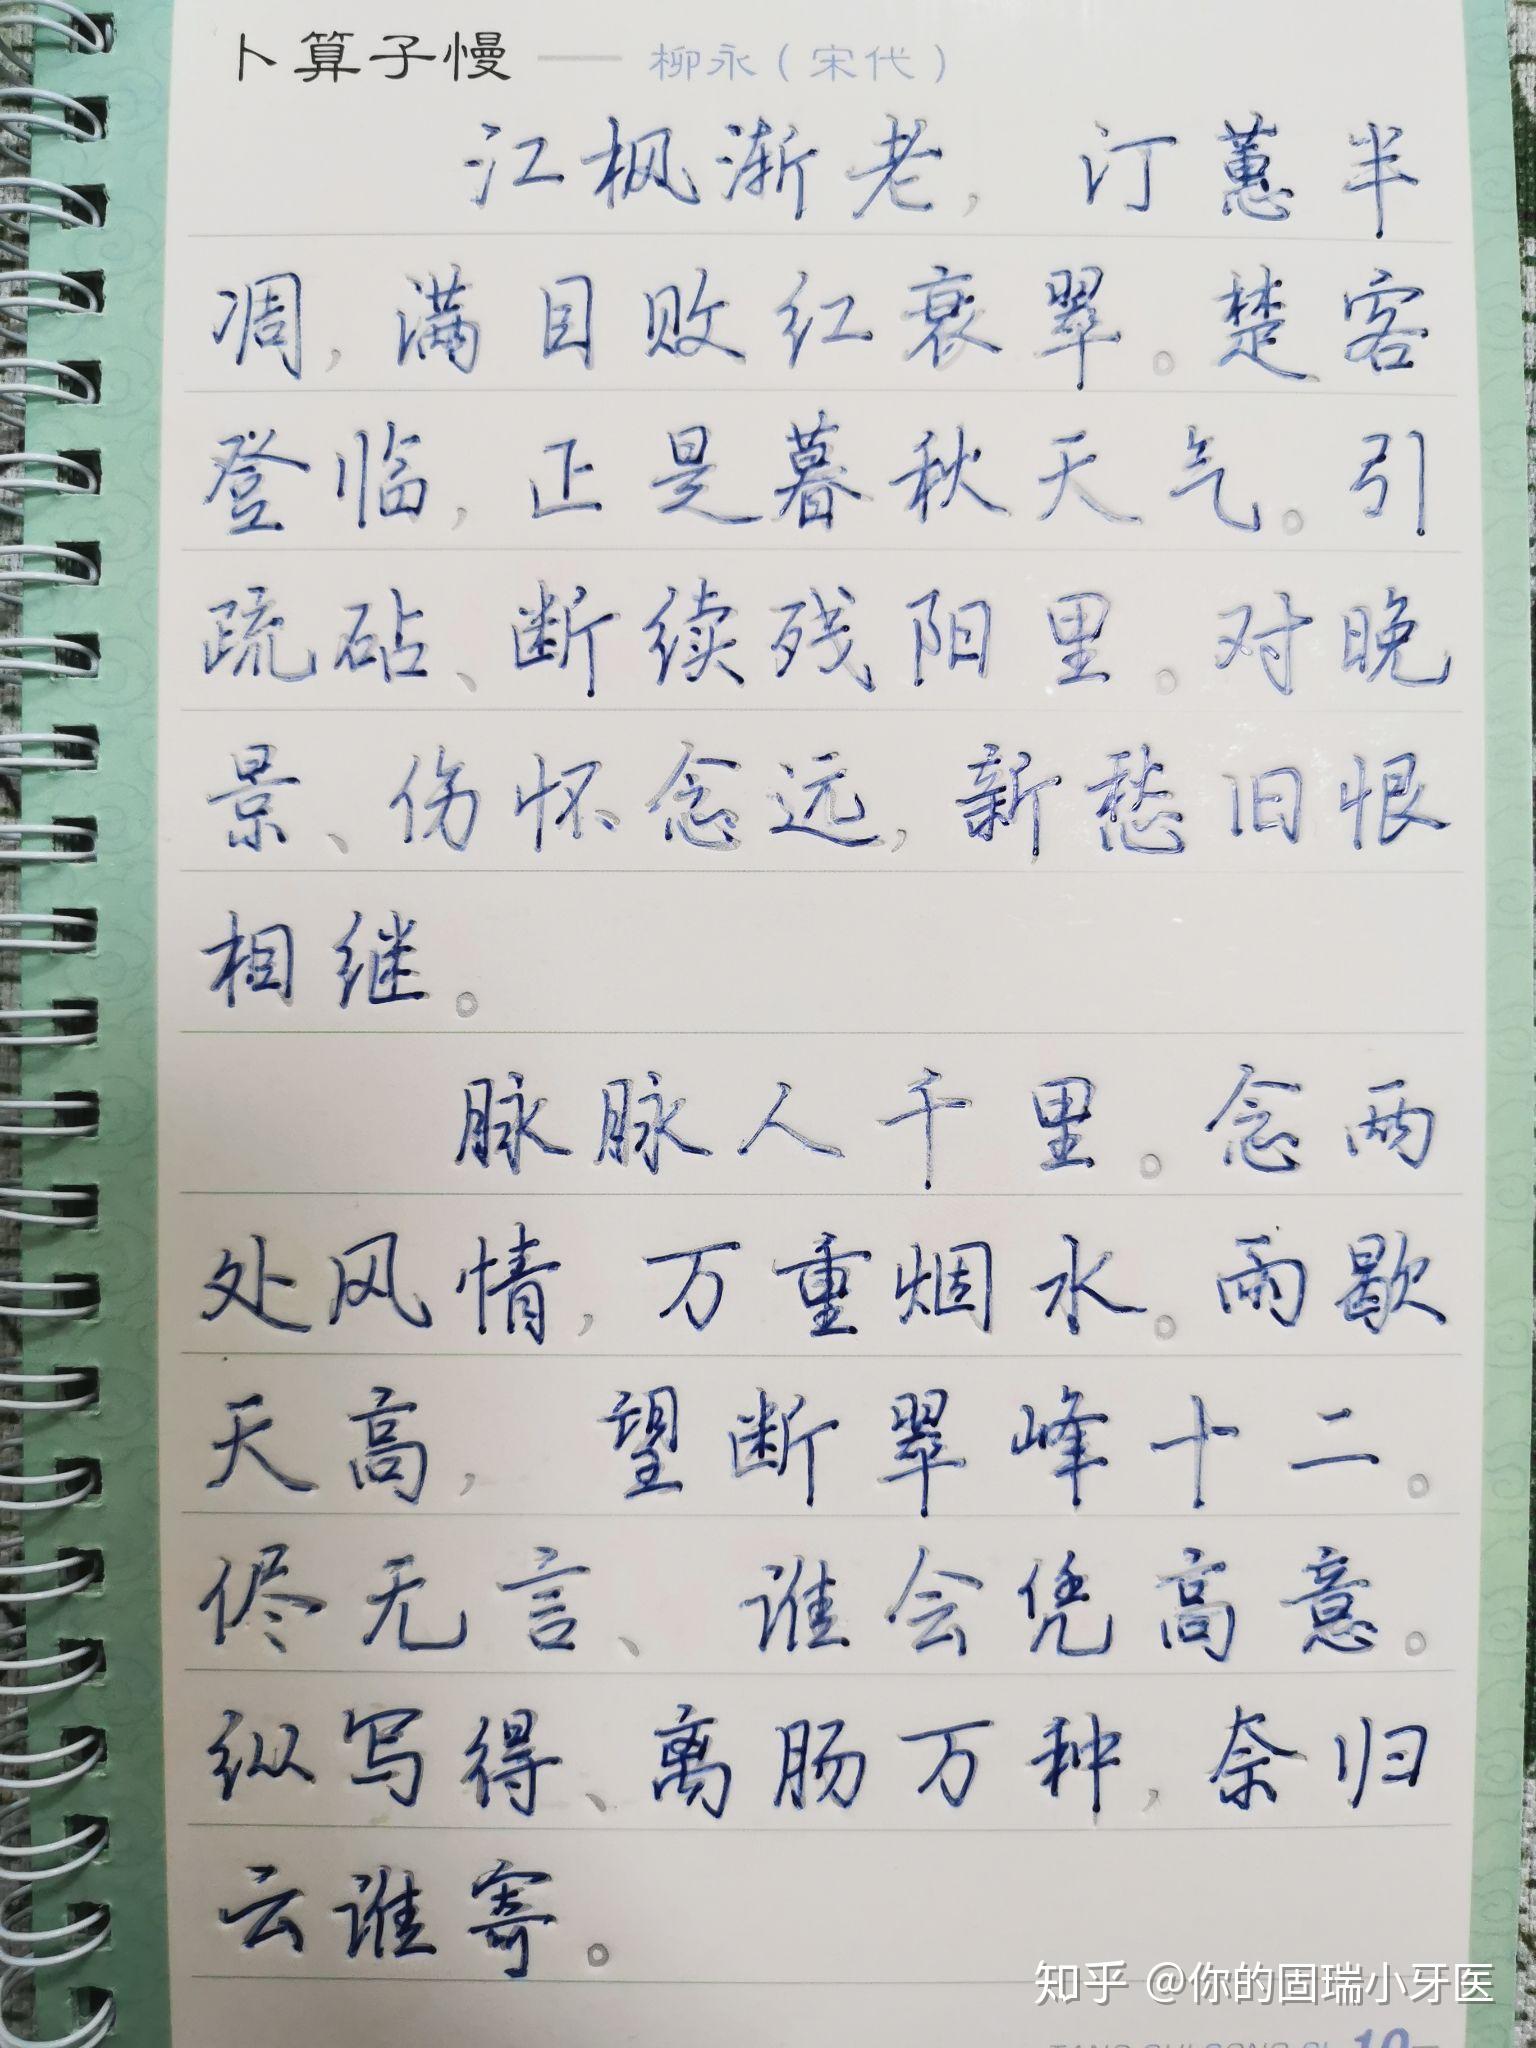 卜算子慢 —— 柳永（宋代）
江枫渐老，汀蕙半
凋，满目败红衰翠。楚客
登临，正是暮秋天气。引
疏砧、断续残阳里。对晚
景、伤怀念远，新愁旧恨
相继。
脉脉人千里。念两
处风情，万重烟水。雨歇
天高，望断翠峰十二。
侭无言、谁会凭高意。
纵写得、离肠万种，奈归
云谁寄。
知乎 @你的固瑞小牙医